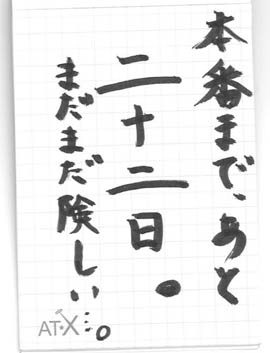 本番まで、あと
二十二日。
まだまだ険しい…。
AT-X